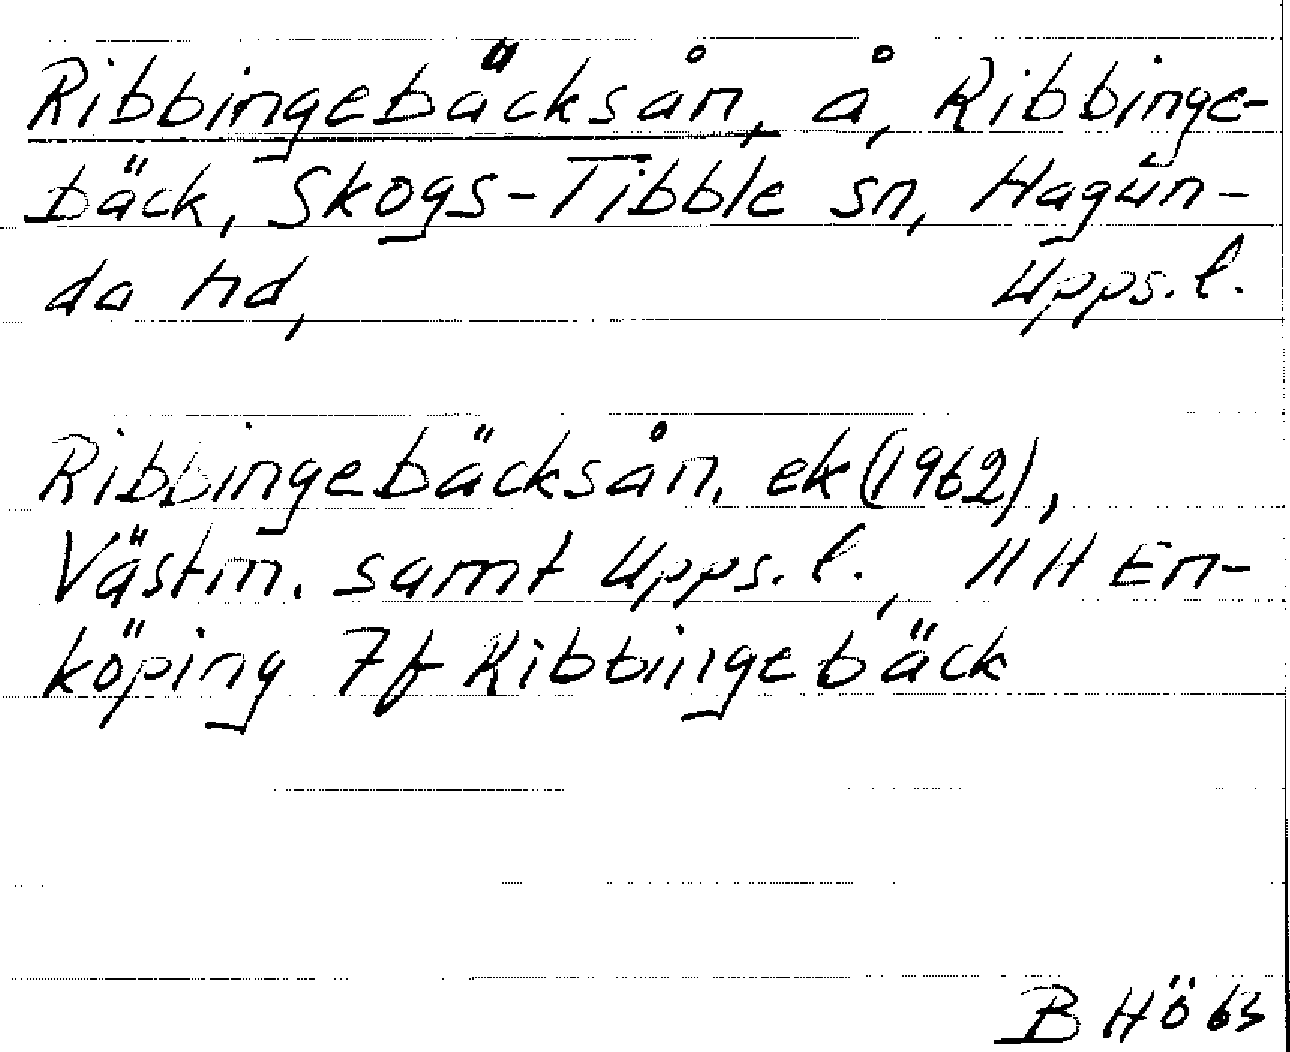 Ribbingebäcksån, å, Ribbinge-
bäck, Skogs-Tibble sn, Hagun-
da hd, Upps.l.
Ribbingebäcksån, ek (1962),
Västm. samt Upps.l., 11 H En-
köping 7f Ribbingebäck
B Hö 63